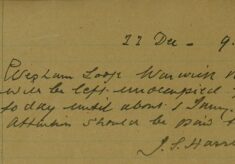 22 Dec - 9.
Wexham Lodge Warwick
will be left unoccupied
to day until about 1 Jany.
Attention should be paid t
J. S. Harri